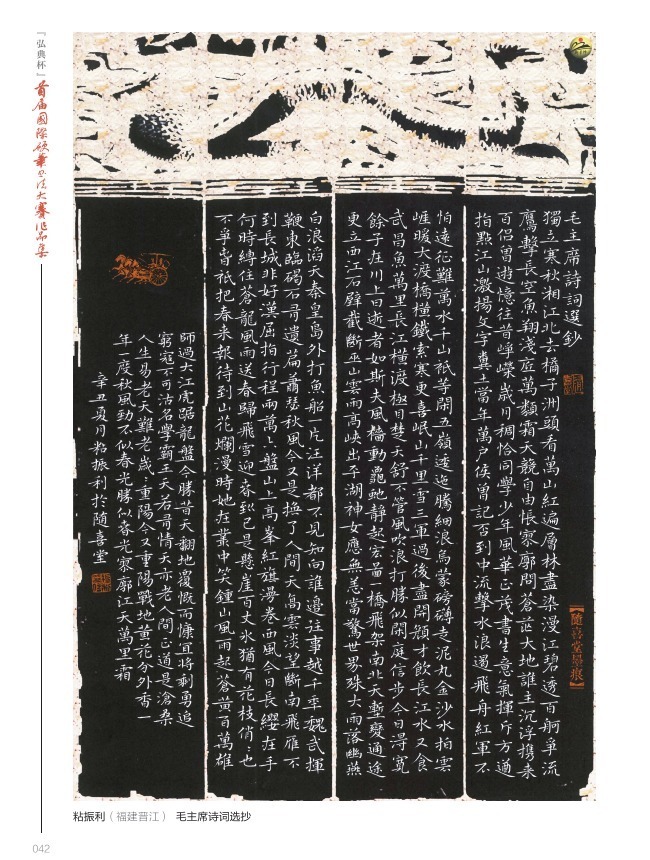 『弘典杯』首届國際硬筆書法大賽作品集
毛主席詩詞選鈔
獨立寒秋湘江北去橘子洲頭看萬山紅遍層林盡染漫江碧透百舸爭流
鷹擊長空魚翔淺底萬類霜天競自由悵寥廓問蒼茫大地誰主沉浮携來
百侶曾遊憶往昔崢嶸歲月稠恰同學少年風華正茂書生意氣揮斥方遒
指點江山激揚文字糞土當年萬戶侯曾記否到中流擊水浪遏飛舟紅軍不
【隨喜堂墨痕】
怕遠征難萬水千山祇等閑五嶺逶迤騰細浪烏蒙磅礴走泥丸金沙水拍雲
崖暖大渡橋橫鐵索寒更喜岷山千里雪三軍過後盡開顏才飲長江水又食
武昌魚萬里長江橫渡極目楚天舒不管風吹浪打勝似閑庭信步今日淂寬
餘子在川上曰逝者如斯夫風檣動龜虵靜起宏圖一橋飛架南北天塹變通途
更立西江石壁截斷巫山雲雨高峽出平湖神女應無恙當驚世界殊大雨落幽燕
白浪滔天秦皇島外打魚船一片汪洋都不見知向誰邊往事越千年魏武揮
鞭東臨碣石有遺篇蕭瑟秋風今又是換了人間天高雲淡望斷南飛雁不
到長城非好漢屈指行程兩萬六盤山上高峰紅旗漫卷西風今日長纓在手
何時縛住蒼龍風雨送春歸飛雪迎春到已是懸崖百丈冰猶有花枝俏俏也
不爭春祇把春來報待到山花爛漫時她在叢中笑鍾山風雨起蒼黃百萬雄
師過大江虎踞龍盤今勝昔天翻地覆慨而慷宜將剩勇追
窮寇不可沽名學霸王天若有情天亦老人間正道是滄桑
人生易老天難老歲歲重陽今又重陽戰地黃花分外香一
年一度秋風勁不似春光勝似春光寥廓江天萬里霜
辛丑夏月粘振利於隨喜堂
粘振利（福建晋江） 毛主席诗词选抄
042